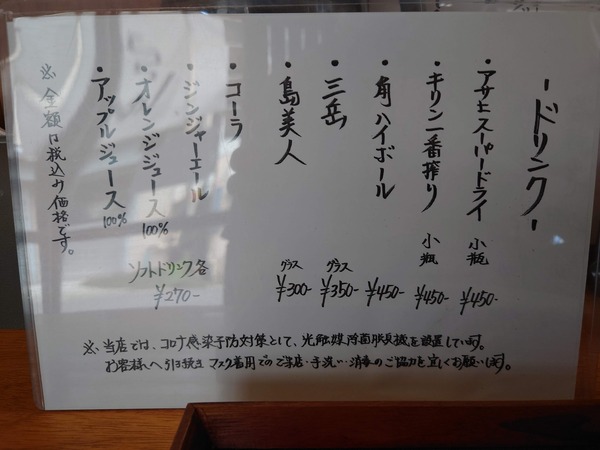 -ドリンク-
・アサヒスーパードライ 小瓶 ¥450-
・キリン一番搾り 小瓶 ¥450-
・角ハイボール ¥450-
・三岳 グラス ¥350-
・島美人 グラス ¥300-
・コーラ
・ジンジャーエール
・オレンジジュース 100%
・アップルジュース 100%
ソフトドリンク各 ¥270-
※金額は税込み価格です。
※当店では、コロナ感染予防対策として、光触媒除菌脱臭機を設置しています。
お客様へ引き続きマスク着用でのご来店・手洗い・消毒のご協力を宜しくお願いします。